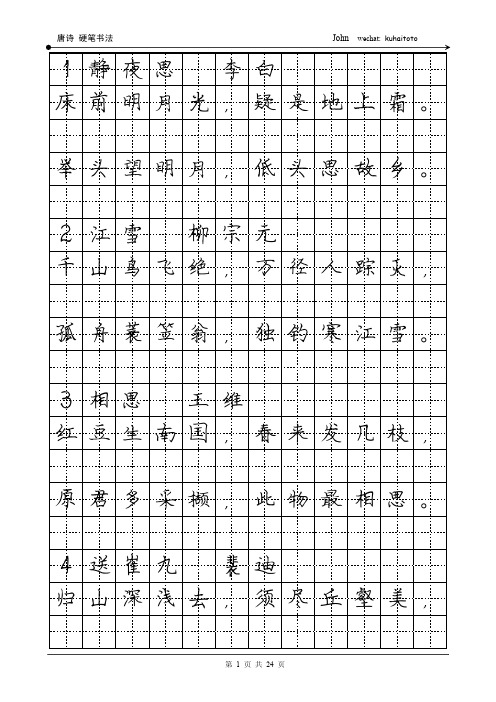 唐诗 硬笔书法 John wechat: kuhaitoto
1 静夜思 李白
床前明月光，疑是地上霜。
举头望明月，低头思故乡。
2 江雪 柳宗元
千山鸟飞绝，万径人踪灭，
孤舟蓑笠翁，独钓寒江雪。
3 相思 王维
红豆生南国，春来发几枝，
原君多采撷，此物最相思。
4 送崔九 裴迪
归山深浅去，须尽丘壑美，
第 1 页 共 24 页